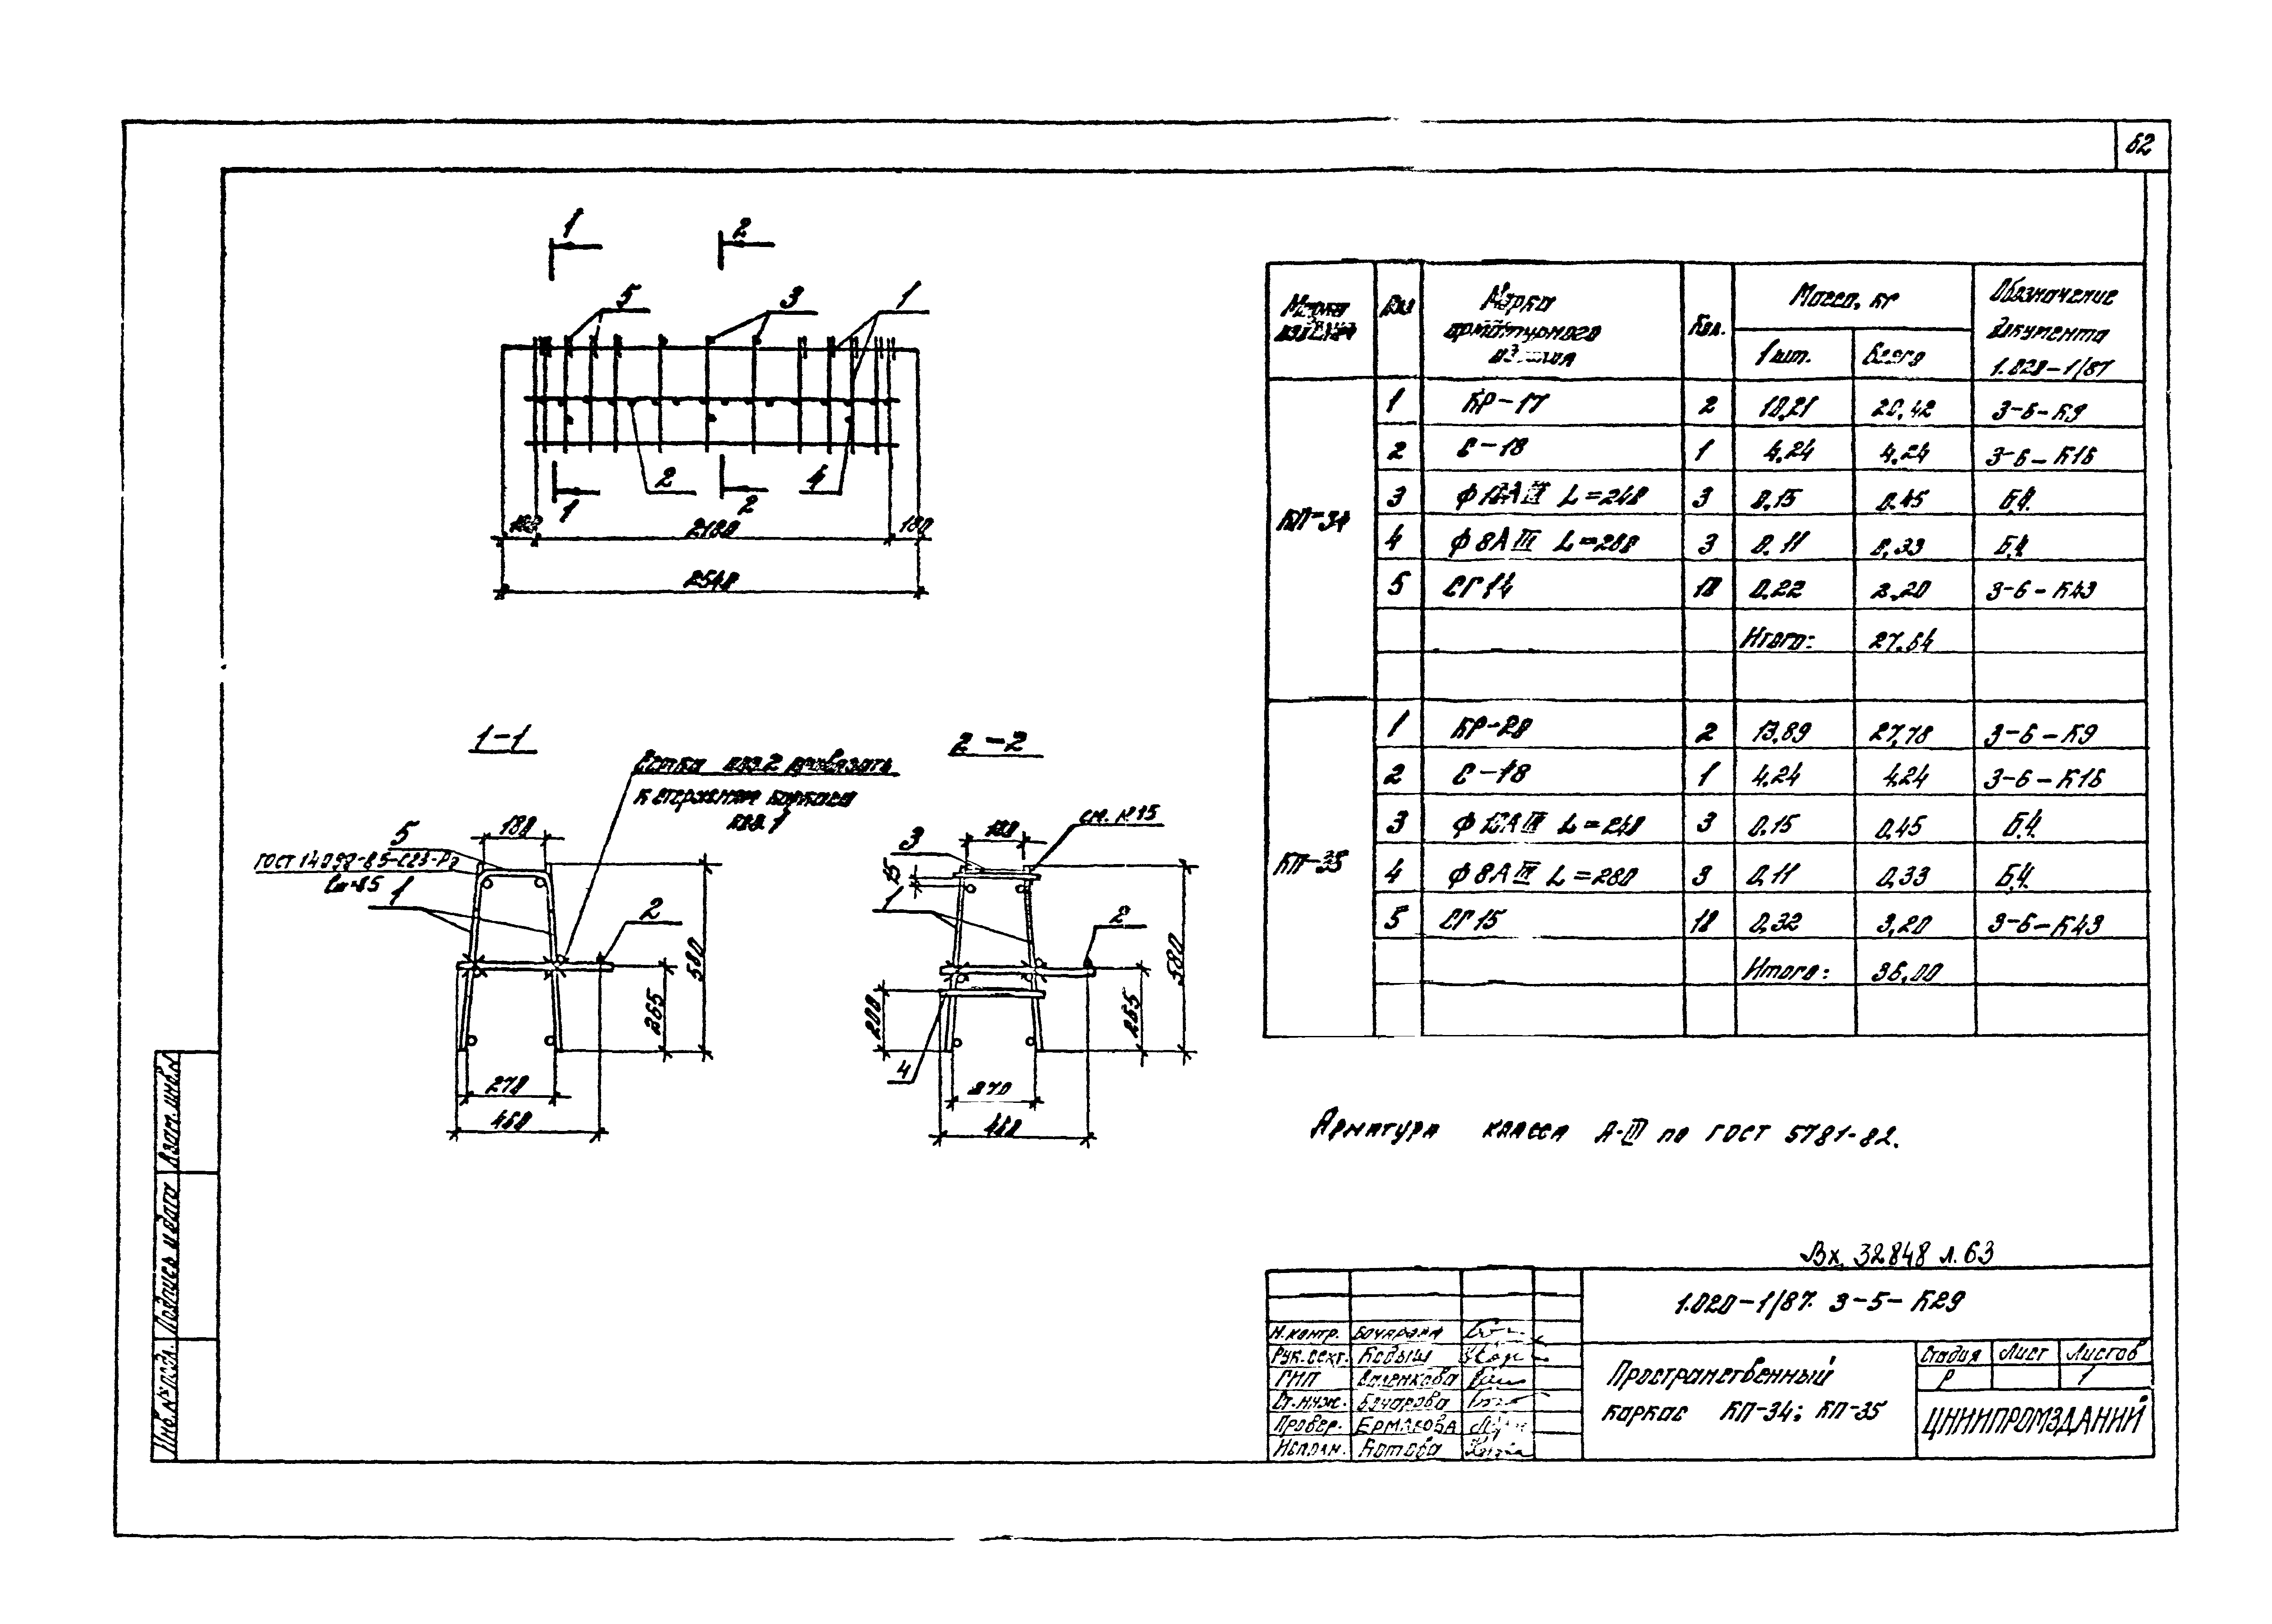 62
1 2
5 3 1
2 4
1 2
180 2180 180
2540
1-1
Сетка поз.2 привязать
к стержням каркаса
поз.1
5
180
ГОСТ 14098-85-С23-Рэ
ℓш=85
1
2
580
265
270
460
2-2
см. №15
3
15
1
2
580
265
200
4
270
460
Марка изделия Поз Марка арматурного изделия Кол. Масса, кг Обозначение документа 1.020-1/87
1 шт. Всего
КП-34
1 КР-17 2 10,21 20,42 3-6-К9
2 С-18 1 4,24 4,24 3-6-К16
3 ф10АIII L=240 3 0,15 0,45 Б.Ч.
4 ф8АIII L=280 3 0,11 0,33 Б.Ч.
5 СГ14 10 0,22 2,20 3-6-К43
Итого: 27,64
КП-35
1 КР-20 2 13,89 27,78 3-6-К9
2 С-18 1 4,24 4,24 3-6-К16
3 ф10АIII L=240 3 0,15 0,45 Б.Ч.
4 ф8АIII L=280 3 0,11 0,33 Б.Ч.
5 СГ15 10 0,32 3,20 3-6-К43
Итого: 36,00
Арматура класса А-III по ГОСТ 5781-82.
Вх. 32848 л.63
1.020-1/87. 3-5-К29
Н.контр. Бочарова
Рук.сект. Кодыш
ГИП
Ст.инж. Бочарова
Провер. Ермакова
Исполн. Котова
Пространственный
каркас КП-34; КП-35
Стадия Лист Листов
Р 1
ЦНИИПРОМЗДАНИЙ
Инв.№подл. Подпись и дата Взам.инв.№